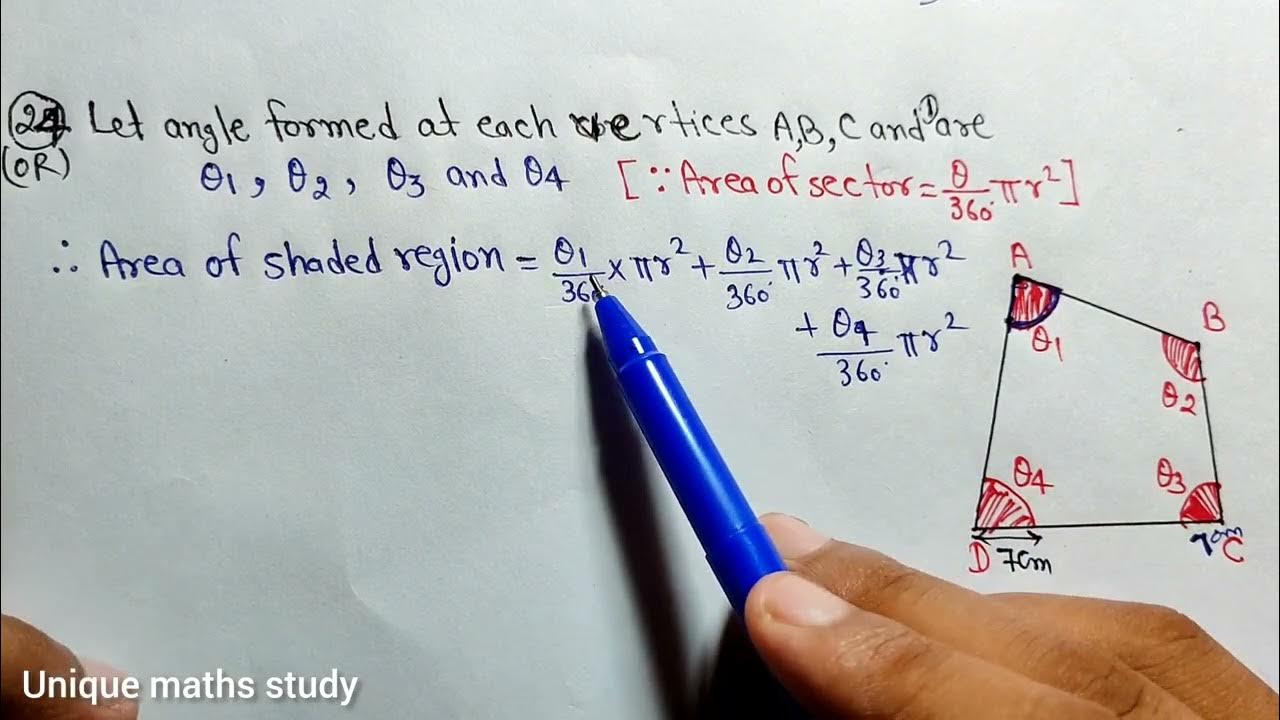 24 Let angle formed at each vertices A,B, C and D are
(OR) θ1, θ2, θ3 and θ4 [∵ Area of sector = θ/360° πr²]
∴ Area of shaded region = θ1/360° × πr² + θ2/360° πr² + θ3/360° πr²
+ θ4/360° πr²
A
B
θ1
θ2
θ4
θ3
D
7cm
7cm
C
Unique maths study